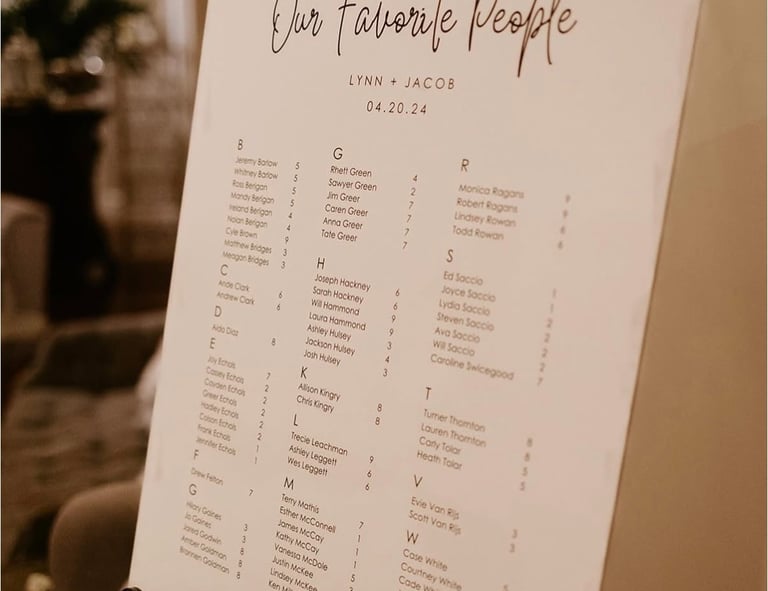 Our Favorite People
LYNN + JACOB
04.20.24
B
Jeremy Barlow 5
Whitney Barlow 5
Ross Berigan 5
Mandy Berigan 5
Ireland Berigan 4
Nolan Berigan 4
Cyle Brown 9
Matthew Bridges 3
Meagan Bridges 3
C
Ande Clark 6
Andrew Clark 6
D
Aida Diaz 8
E
Joy Echols 7
Casey Echols 2
Cayden Echols 2
Greer Echols 2
Hadley Echols 2
Colson Echols 2
Frank Echols 1
Jennifer Echols 1
F
Drew Felton 7
G
Hilary Gaines 3
Jo Gaines 3
Jared Godwin 8
Amber Goldman 8
Brannen Goldman 8
G
Rhett Green 4
Sawyer Green 2
Jim Greer 7
Caren Greer 7
Anna Greer 7
Tate Greer 7
H
Joseph Hackney 6
Sarah Hackney 6
Will Hammond 9
Laura Hammond 9
Ashley Hulsey 3
Jackson Hulsey 4
Josh Hulsey 3
K
Allison Kingry 8
Chris Kingry 8
L
Trecie Leachman 9
Ashley Leggett 6
Wes Leggett 6
M
Terry Mathis 7
Esther McConnell 1
James McCay 1
Kathy McCay 1
Vanessa McDole 5
Justin McKee
Lindsey McKee
Ken
R
Monica Ragans 9
Robert Ragans 9
Lindsey Rowan 6
Todd Rowan 6
S
Ed Saccio 1
Joyce Saccio 1
Lydia Saccio 2
Steven Saccio 2
Ava Saccio 2
Will Saccio 2
Caroline Swicegood 7
T
Turner Thornton 8
Lauren Thornton 8
Carly Tolar 5
Heath Tolar 5
V
Evie Van Rijs 3
Scott Van Rijs 3
W
Case White
Courtney White
Cade